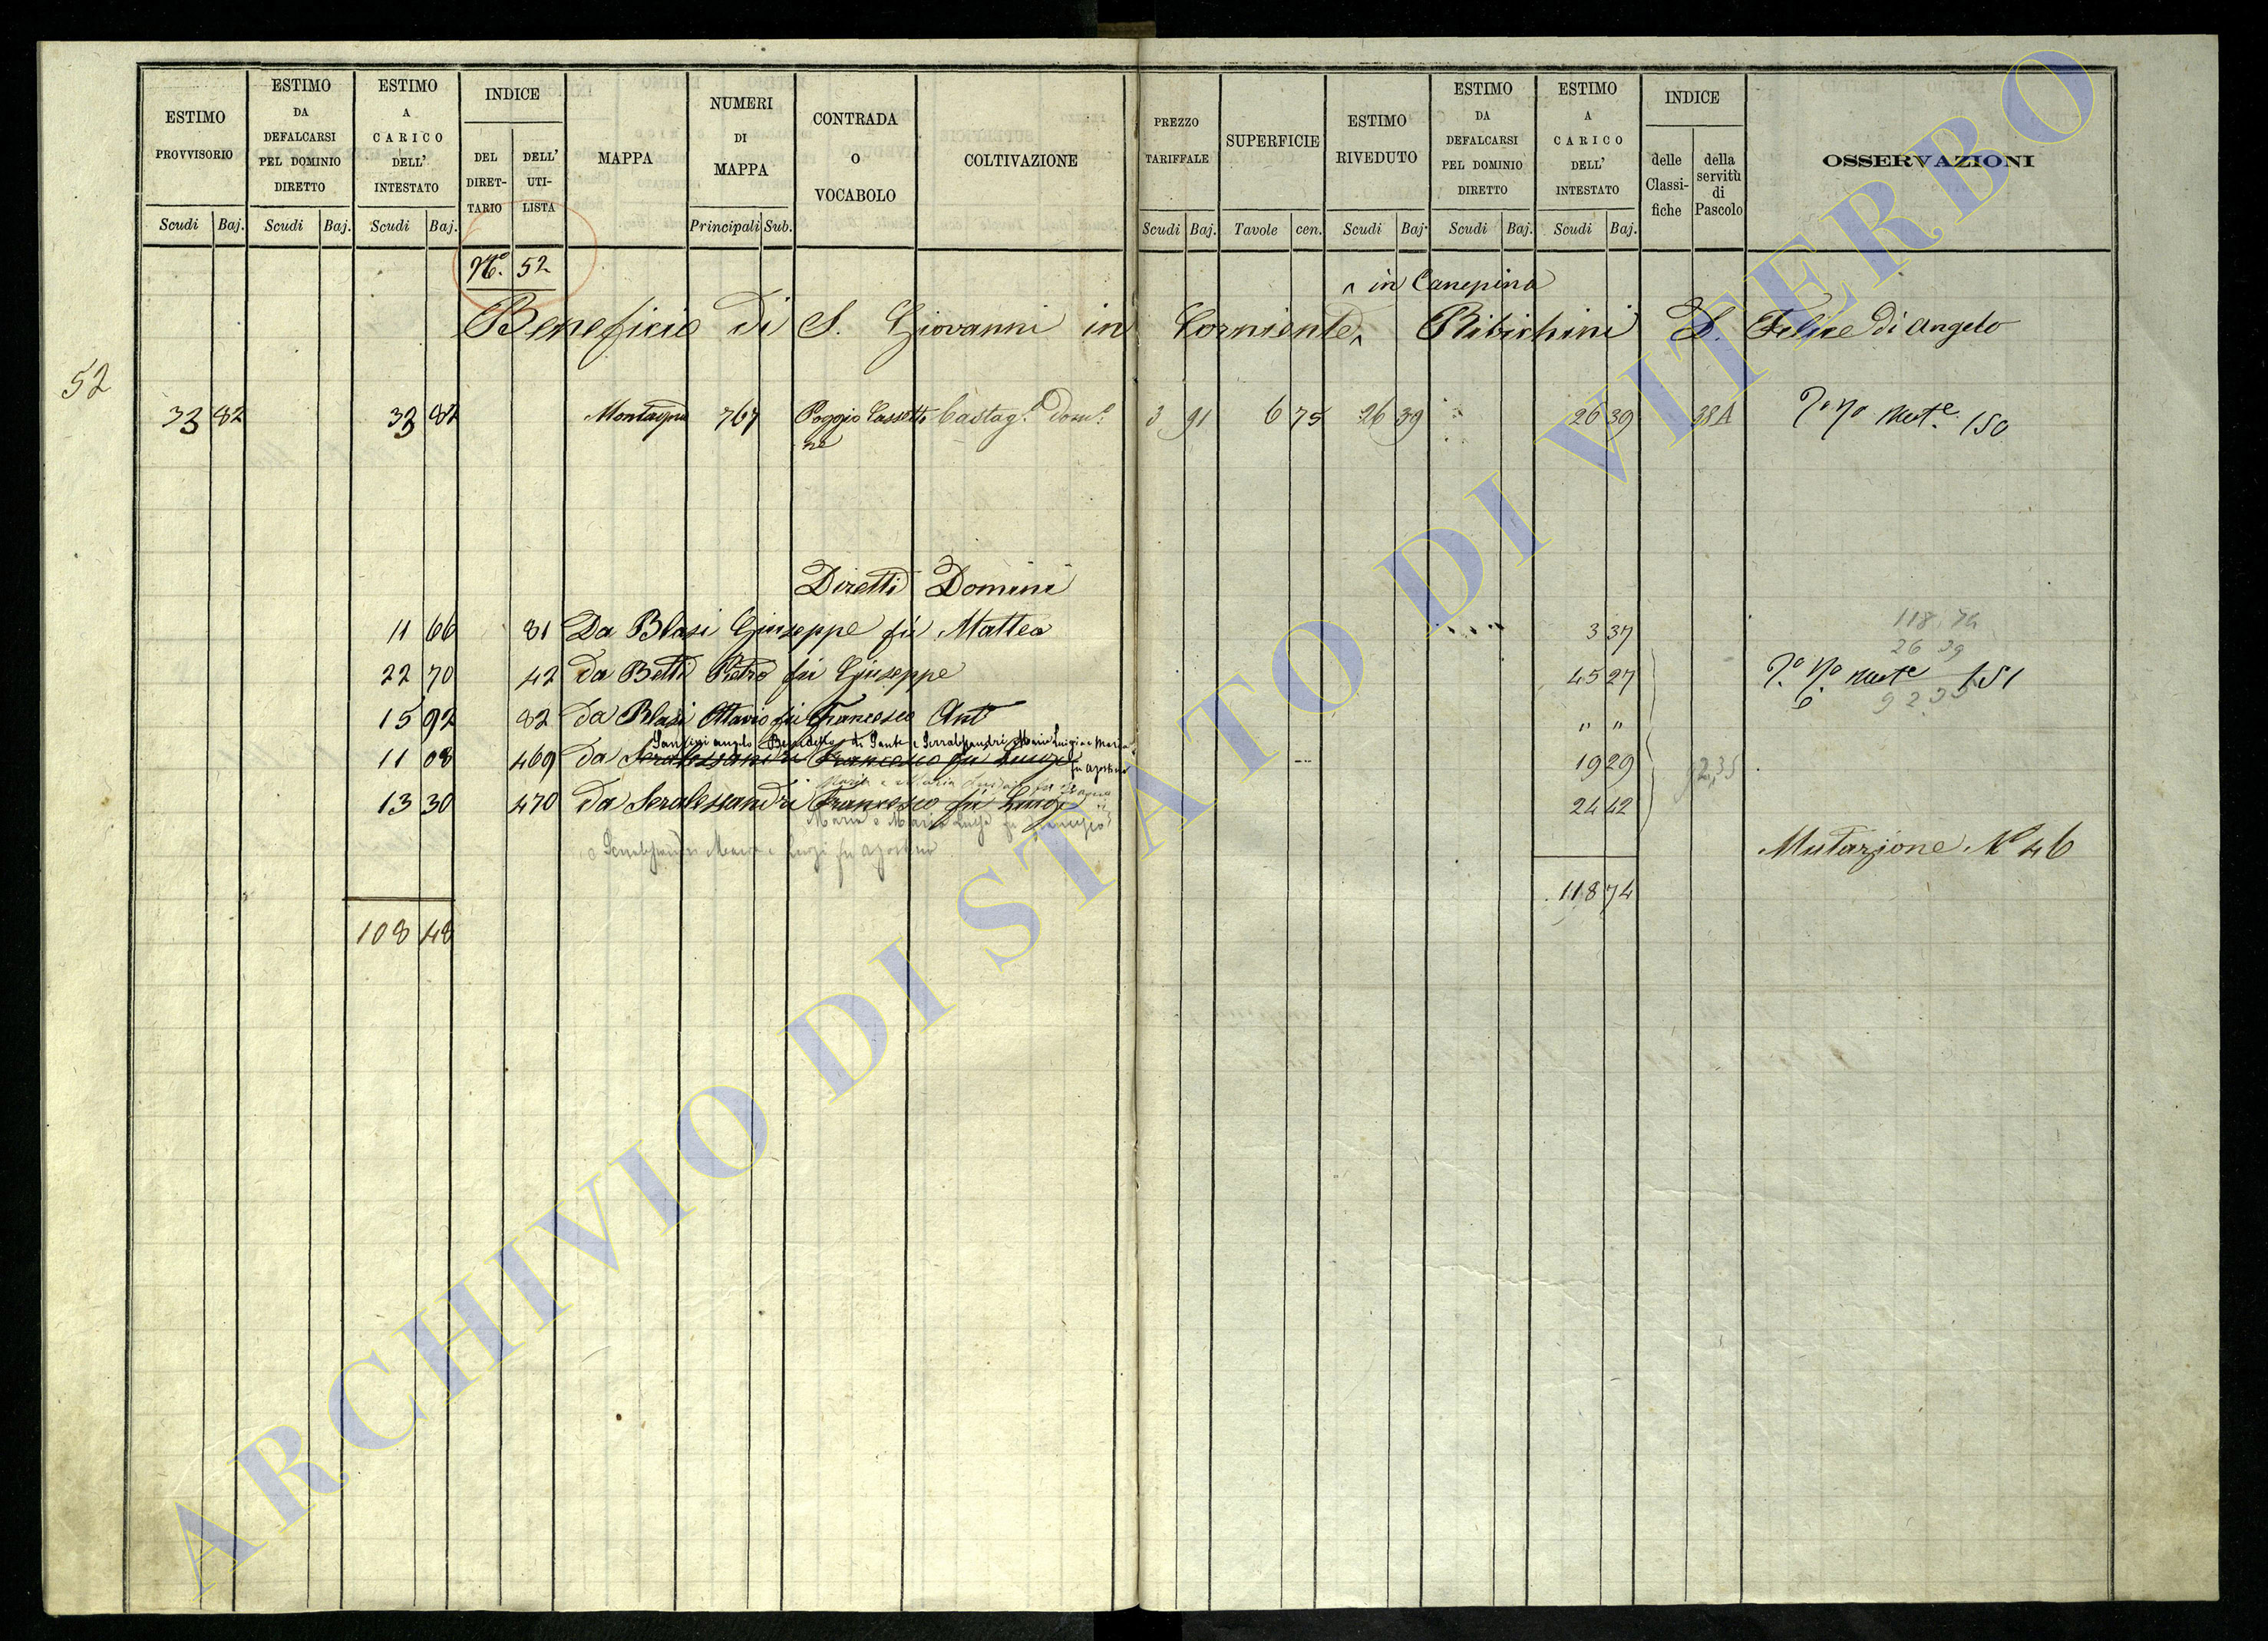 ESTIMO PROVVISORIO
ESTIMO DA DEFALCARSI PEL DOMINIO DIRETTO
ESTIMO A CARICO DELL' INTESTATO
INDICE
DEL DIRET-TARIO
DELL' UTI-LISTA
MAPPA
NUMERI DI MAPPA
CONTRADA O VOCABOLO
COLTIVAZIONE
PREZZO TARIFFALE
SUPERFICIE
ESTIMO RIVEDUTO
ESTIMO DA DEFALCARSI PEL DOMINIO DIRETTO
ESTIMO A CARICO DELL' INTESTATO
INDICE
delle Classi-fiche
della servitù di Pascolo
OSSERVAZIONI
Scudi Baj. Scudi Baj. Scudi Baj. Principali Sub. Scudi Baj. Tavole cen. Scudi Baj. Scudi Baj. Scudi Baj.
N.º 52
^ in Canepina
Beneficio di S. Giovanni in Corniente^ Ribichini D. Felice di Angelo
52
33 82 33 82 Montagna 767 Poggio Cassetti Castag.º Dom.º 3 91 6 75 26 39 26 39 38A 150
ne
Diretti Domini
11 66 81 Da Blasi Giuseppe fu Matteo 3 37
118,74
26 39
22 70 42 da Betti Pietro fu Giuseppe 45 27 151
92 35
15 92 82 da Blasi Ottavio fu Francesco Ant " "
11 08 469 da Seralessandri Francesco fu Luigi 19 29
fu Agostino
92,35
13 30 470 da Seralessandri Francesco fu Luigi 24 42
Mutazione Nº 46
118 74
108 48
ARCHIVIO DI STATO DI VITERBO